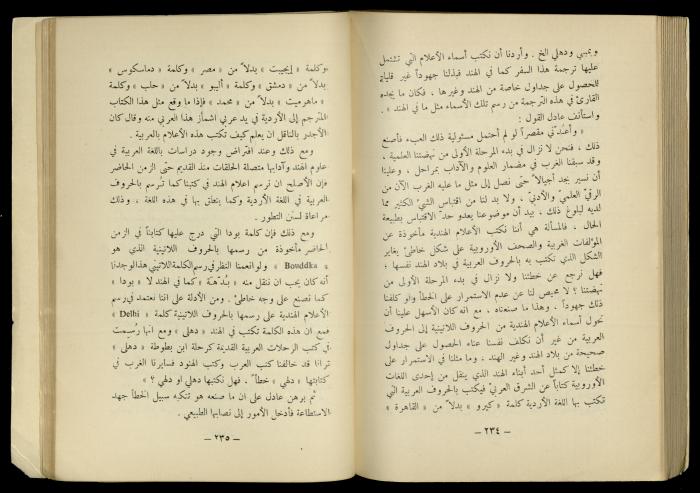 وبمبي ودهلي الخ . وأردنا أن نكتب أسماء الأعلام التي تشتمل
عليها ترجمة هذا السفر كما في الهند فبذلنا جهوداً غير قليلة
للحصول على جداول خاصة من الهند وغيرها ، فكان ما يجده
القارئ في هذه الترجمة من رسم تلك الأسماء مثل ما في الهند » .
واستأنف عادل القول :
« وأعُدّني مقصراً لو لم أحتمل مسئولية ذلك العبء فأصنع
ذلك ، فنحن لا نزال في بدء المرحلة الأولى من نهضتنا العلمية ،
وقد سبقنا الغرب في مضمار العلوم والآداب بمراحل ، وعلينا
أن نسير بجد أجيالاً حتى نصل إلى مثل ما عليه الغرب الآن من
الرقيّ العلميّ والأدبيّ ، ولا بد لنا من اقتباس الشيء الكثير مما
لديه لبلوغ ذلك ، بيد أن موضوعنا يعدو حدّ الاقتباس بطبيعة
الحال ، فالمسألة هي أننا نكتب الأعلام الهندية مأخوذة عن
المؤلفات الغربية والصحف الأوروبية على شكل خاطئ يغاير
الشكل الذي تكتب به بالحروف العربية في بلاد الهند نفسها ؛
فهل نرجع عن خطئنا ولا نزال في بدء المرحلة الأولى من
نهضتنا ؟ لا محيص لنا عن عدم الاستمرار على الخطأ ولو كلفنا
ذلك جهوداً ، وهذا ما صنعناه ، مع انه كان الأسهل علينا أن
نحول أسماء الأعلام الهندية من الحروف اللاتينية إلى الحروف
العربية من غير أن نكلف نفسنا عناء الحصول على جداول
صحيحة من بلاد الهند وغير الهند ، وما مثلنا في الاستمرار على
خطئنا إلا كمثل أحد أبناء الهند الذي ينقل من إحدى اللغات
الأوروبية كتاباً عن الشرق العربيّ فيكتب بالحروف العربية التي
تكتب بها اللغة الأردية كلمة « كيرو » بدلاً من « القاهرة »
— ٢٣٤ —
وكلمة « إيجيبت » بدلاً من « مصر » وكلمة « دماسكوس »
بدلاً من « دمشق » وكلمة « أليبو » بدلاً من « حلب » وكلمة
« ماهوميت » بدلاً من « محمد » فإذا ما وقع مثل هذا الكتاب
المترجم إلى الأردية في يد عربي اشمأز هذا العربي منه وقال كان
الأجدر بالناقل ان يعلم كيف تكتب هذه الأعلام بالعربية .
ومع ذلك وعند افتراض وجود دراسات باللغة العربية في
علوم الهند وآدابها متصلة الحلقات منذ القديم حتى الزمن الحاضر
فإن الأصلح ان نرسم اعلام الهند في كتبنا كما تُرسم بالحروف
العربية في اللغة الأردية وكما ينطق بها في هذه اللغة ، وذلك
مراعاة لسنن التطور .
ومع ذلك فإن كلمة بودا التي درج عليها كتابنا في الزمن
الحاضر مأخوذة من رسمها بالحروف اللاتينية الذي هو
« Bouddka » ولو انعمنا النظر في رسم الكلمة اللاتيني هذا لوجدنا
أنه كان يجب ان ننقل منه « بُدّهة » كما في الهند لا « بودا »
كما نصنع على وجه خاطئ . ومن الأدلة على اننا نعتمد في رسم
الأعلام الهندية على رسمها بالحروف اللاتينية كلمة « Delhi »
فمع ان هذه الكلمة تكتب في الهند « دهلي » ومع انها رُسمت
في كتب الرحلات العربية القديمة كرحلة ابن بطوطة « دهلى »
ترانا قد خالفنا كتب العرب وكتب الهنود فسايرنا الغرب في
كتابتها « دلهي » خطأً . فهل نكتبها دهلي او دلهي ؟ »
ثم برهن عادل على ان ما صنعه هو تنكبه سبيل الخطأ جهد
الاستطاعة فأدخل الأمور إلى نصابها الطبيعي .
— ٢٣٥ —